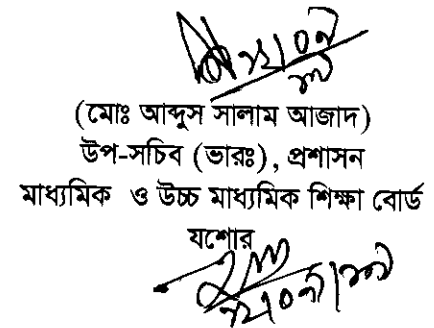 (মোঃ আব্দুস সালাম আজাদ)
উপ-সচিব (ভারঃ), প্রশাসন
মাধ্যমিক ও উচ্চ মাধ্যমিক শিক্ষা বোর্ড
যশোর